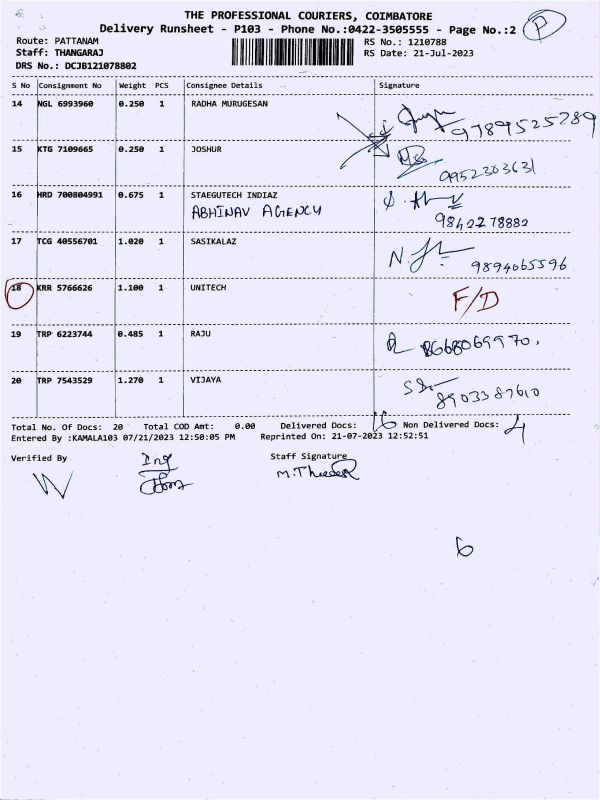 THE PROFESSIONAL COURIERS, COIMBATORE
Delivery Runsheet - P103 - Phone No.:0422-3505555 - Page No.:2 P
Route: PATTANAM RS No.: 1210788
Staff: THANGARAJ RS Date: 21-Jul-2023
DRS No.: DCJB121078802
S No Consignment No Weight PCS Consignee Details Signature
14 NGL 6993960 0.250 1 RADHA MURUGESAN
9789525289
15 KTG 7109665 0.250 1 JOSHUR
9952303631
16 HRD 700804991 0.675 1 STAEGUTECH INDIAZ
ABHINAV AGENCY
9842278882
17 TCG 40556701 1.020 1 SASIKALAZ
9894065596
18 KRR 5766626 1.100 1 UNITECH F/D
19 TRP 6223744 0.485 1 RAJU 8668069970.
20 TRP 7543529 1.270 1 VIJAYA
8903387610
Total No. Of Docs: 20 Total COD Amt: 0.00 Delivered Docs: 16 Non Delivered Docs: 4
Entered By :KAMALA103 07/21/2023 12:50:05 PM Reprinted On: 21-07-2023 12:52:51
Verified By Staff Signature
6